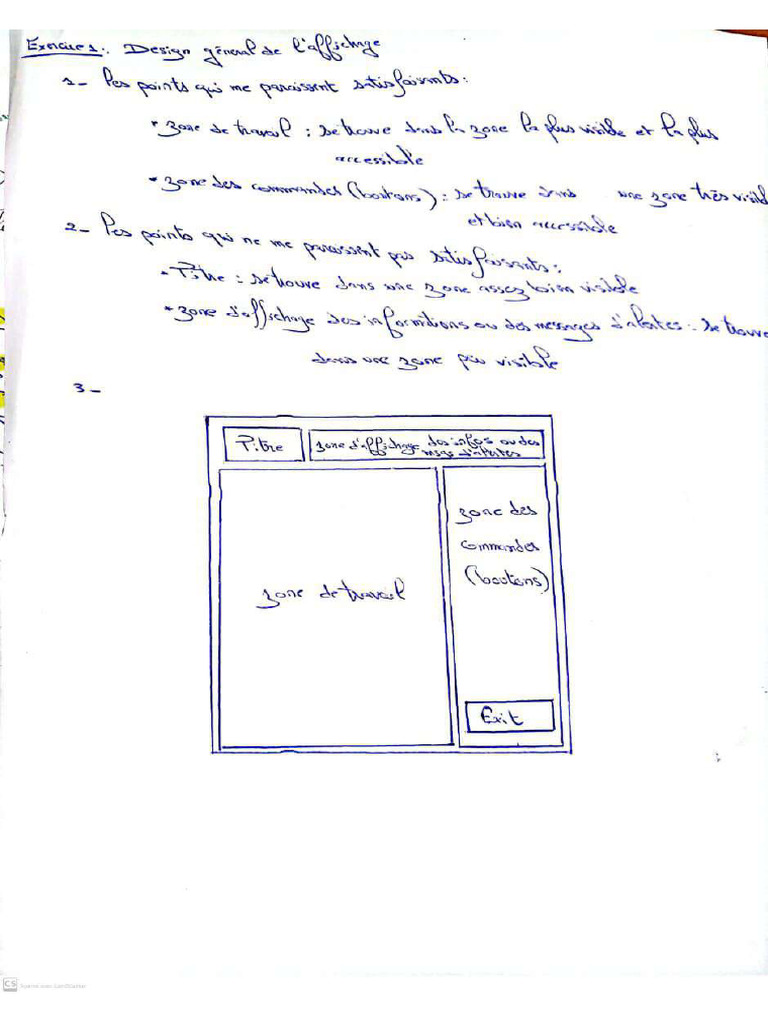 Exercice 1 : Design général de l'affichage
1 - Les points qui me paraissent satisfaisants :
• Zone de travail : se trouve dans la zone la plus visible et la plus
accessible
• Zone des commandes (boutons) : se trouve dans une zone très visibl
et bien accessible
2 - Les points qui ne me paraissent pas satisfaisants :
• Titre : se trouve dans une zone assez bien visible
• Zone d'affichage des informations ou des messages d'alertes : se trouve
dans une zone peu visible
3 -
Titre
zone d'affichage des infos ou des
msgs d'alertes
zone des
commandes
(boutons)
zone de travail
Exit
CS